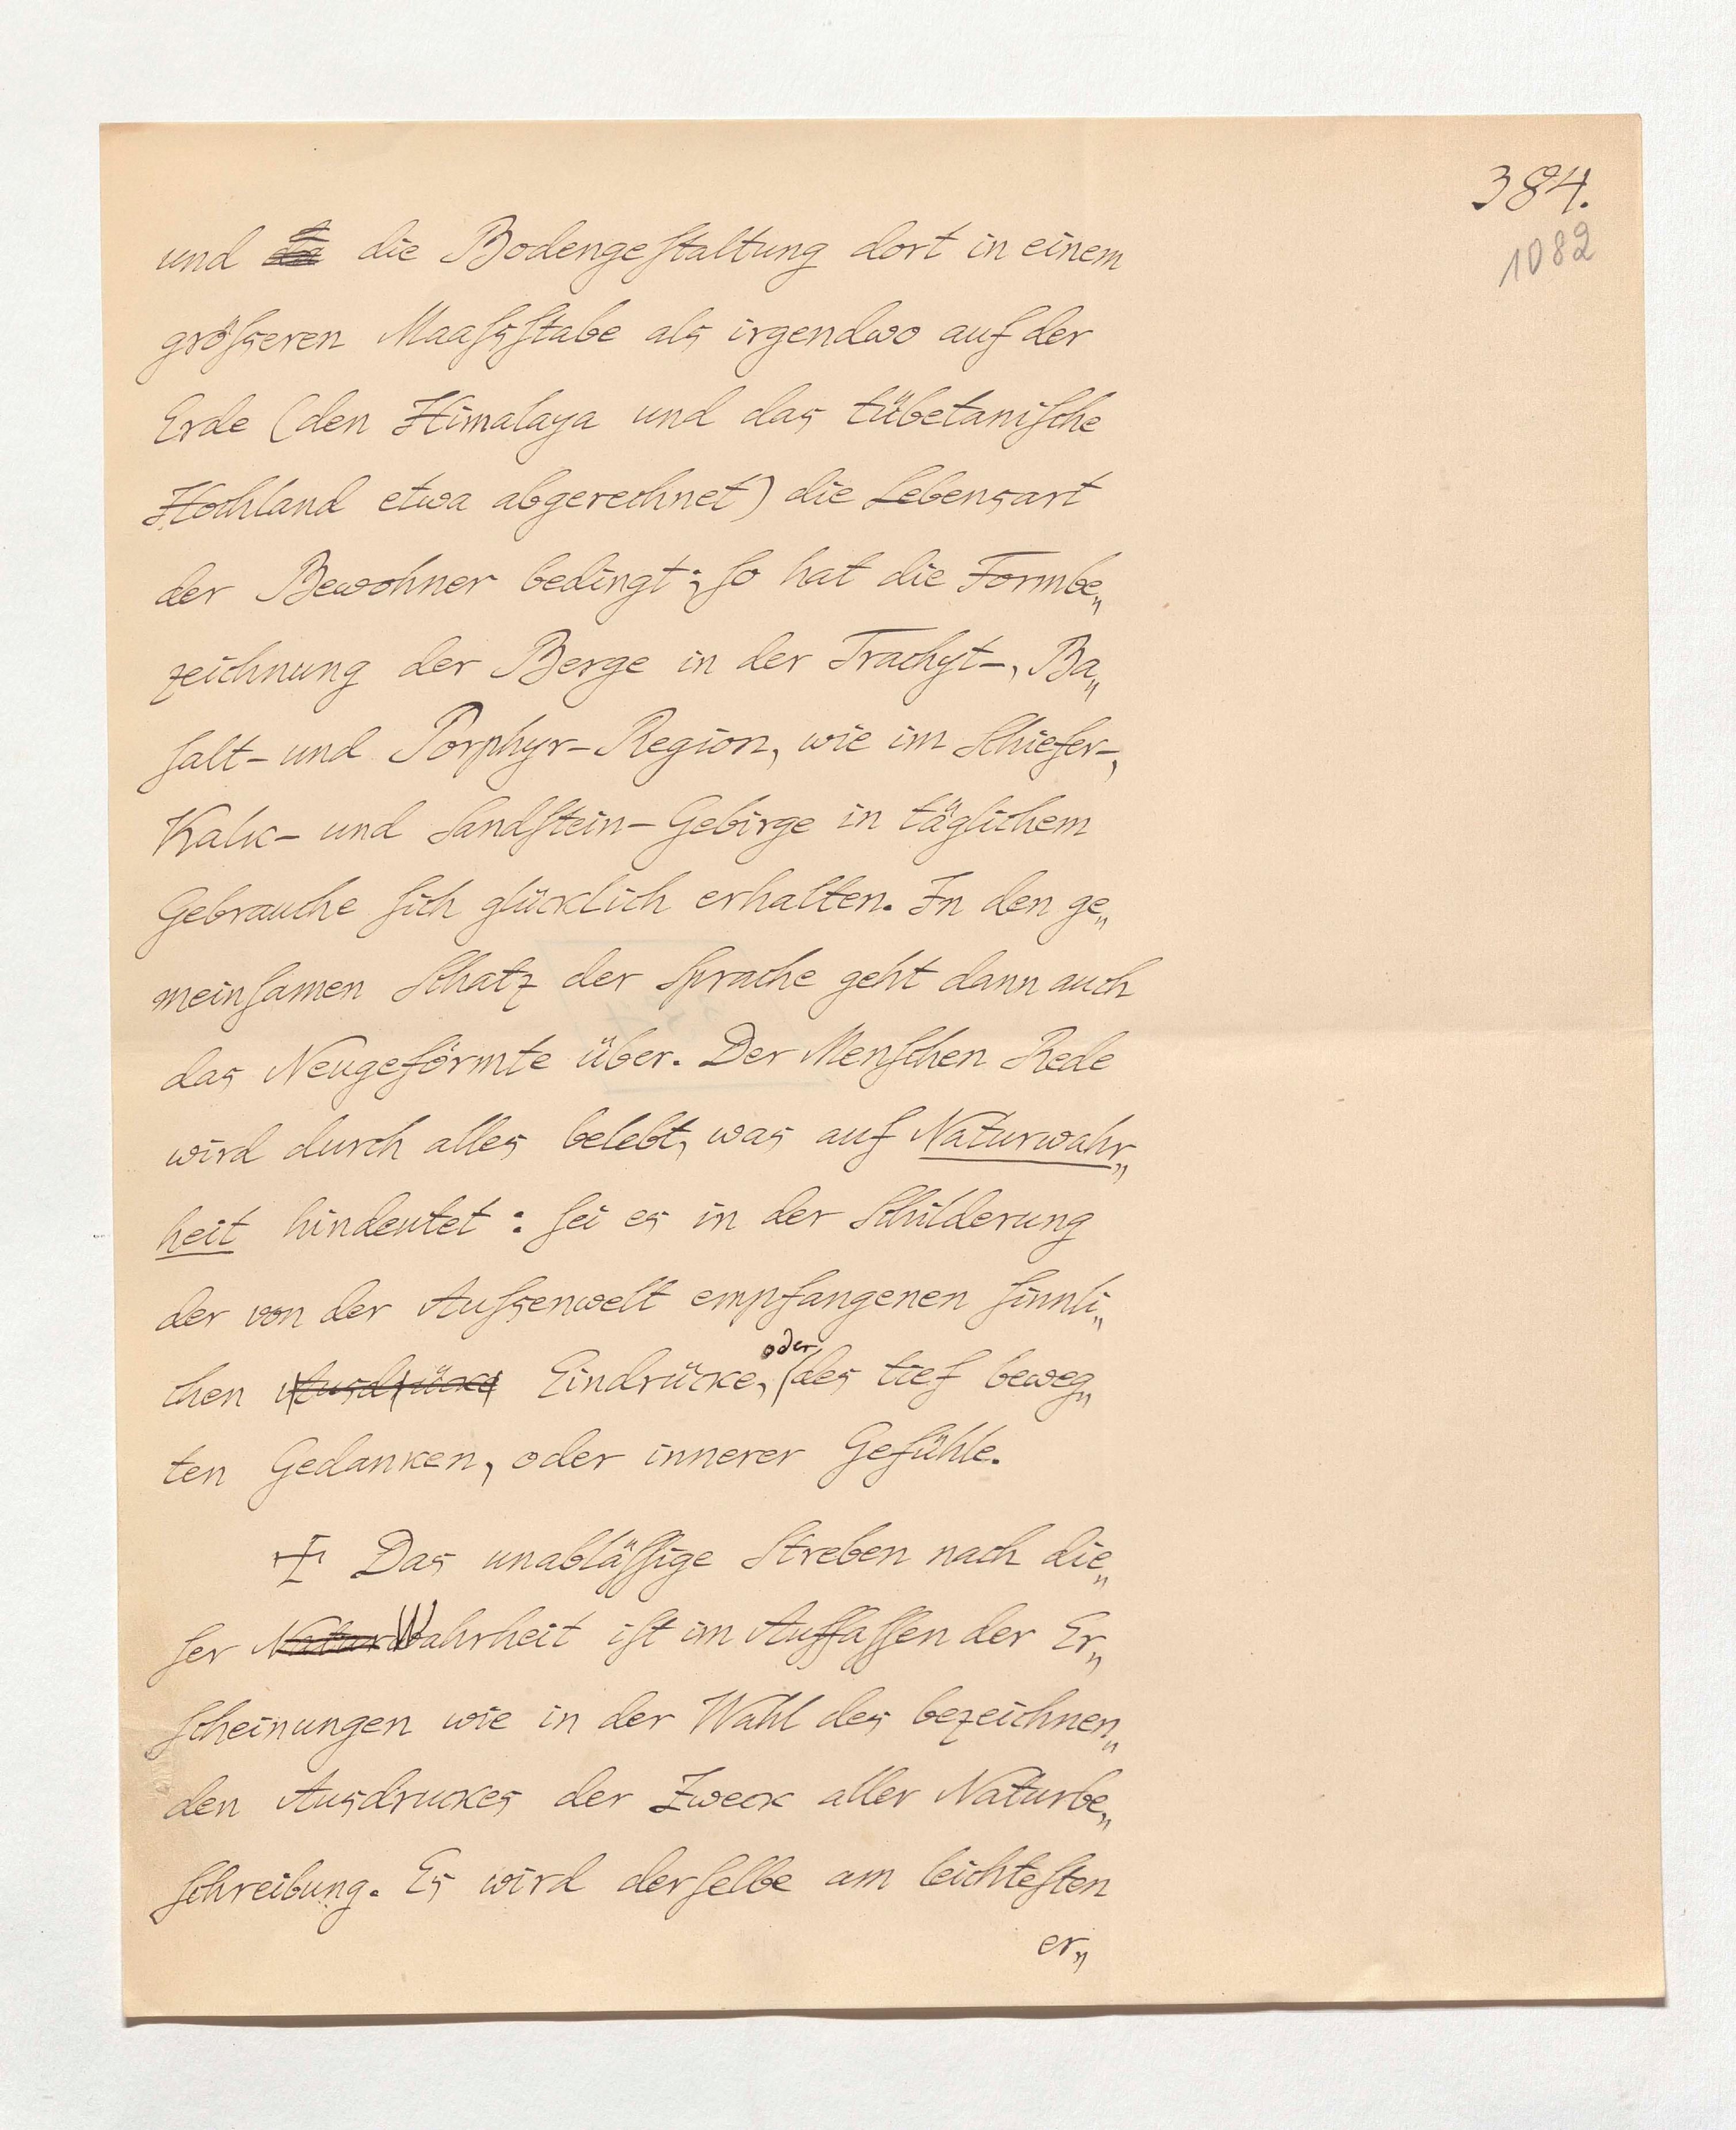 384.
1082
und die die Bodengeſtaltung dort in einem
gröſseren Maaſsſtabe als irgendwo auf der
Erde (den Himalaya und das tübetaniſche
Hochland etwa abgerechnet) die Lebensart
der Bewohner bedingt; ſo hat die Formbe„
zeichnung der Berge in der Trachyt-, Ba„
ſalt- und Porphyr-Region, wie im Schiefer-,
Kalk- und Sandſtein-Gebirge in täglichem
Gebrauche ſich glücklich erhalten. In den ge„
meinſamen Schatz der Sprache geht dann auch
das Neugeförmte über. Der Menſchen Rede
wird durch alles belebt, was auf Naturwahr„
heit hindeutet: ſei es in der Schilderung
der von der Auſsenwelt empfangenen ſinnli„
chen Ausdrücke Eindrücke, oder des tief beweg„
ten Gedanken, oder innerer Gefühle.
Das unabläſſige Streben nach die„
ſer NaturWahrheit iſt im Auffaſſen der Er„
ſcheinungen wie in der Wahl des bezeichnen„
den Ausdruckes der Zweck aller Naturbe„
ſchreibung. Es wird derſelbe am leichteſten
er„